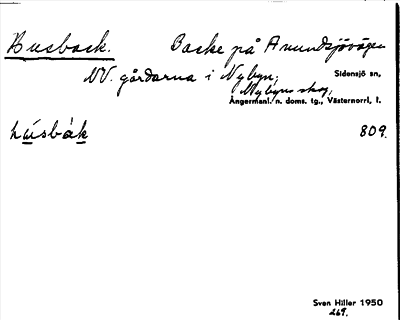 Busback. Backe på Anundsjövägen
NV. gårdarna i Nybyn,
Sidensjö sn,
Nybyns skog,
Ångermanl:n. doms. tg., Västernorrl. l.
hu̲sbák̲ 809.
Sven Hiller 1950
269.